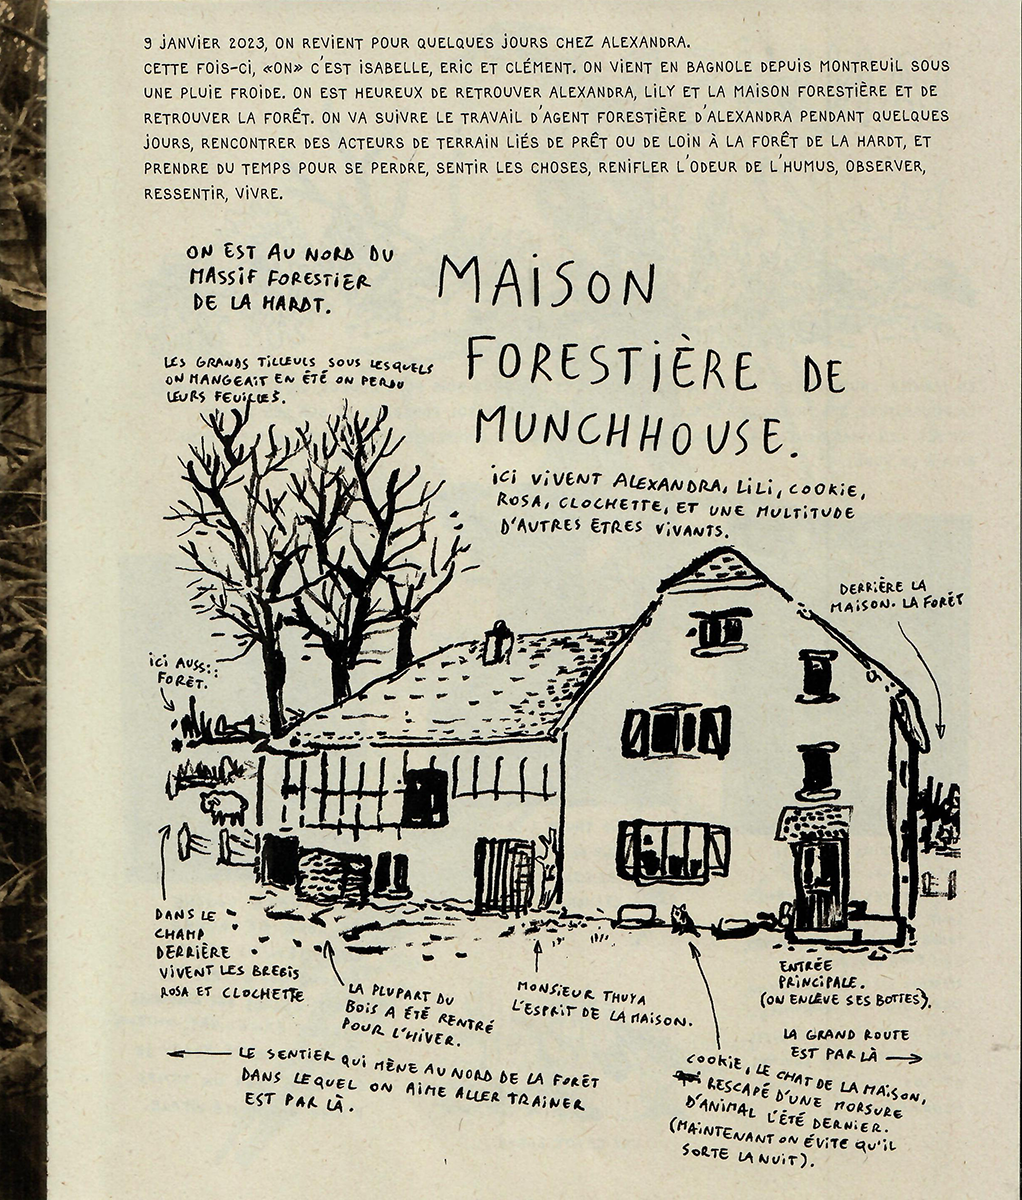 9 JANVIER 2023, ON REVIENT POUR QUELQUES JOURS CHEZ ALEXANDRA.
CETTE FOIS-CI, «ON» C'EST ISABELLE, ERIC ET CLÉMENT. ON VIENT EN BAGNOLE DEPUIS MONTREUIL SOUS
UNE PLUIE FROIDE. ON EST HEUREUX DE RETROUVER ALEXANDRA, LILY ET LA MAISON FORESTIÈRE ET DE
RETROUVER LA FORÊT. ON VA SUIVRE LE TRAVAIL D'AGENT FORESTIÈRE D'ALEXANDRA PENDANT QUELQUES
JOURS, RENCONTRER DES ACTEURS DE TERRAIN LIÉS DE PRÊT OU DE LOIN À LA FORÊT DE LA HARDT, ET
PRENDRE DU TEMPS POUR SE PERDRE, SENTIR LES CHOSES, RENIFLER L'ODEUR DE L'HUMUS, OBSERVER,
RESSENTIR, VIVRE.
ON EST AU NORD DU
MASSIF FORESTIER
DE LA HARDT.
MAISON
FORESTIÈRE DE
MUNCHHOUSE.
LES GRANDS TILLEULS SOUS LESQUELS
ON MANGEAIT EN ÉTÉ ON PERDU
LEURS FEUILLES.
ICI VIVENT ALEXANDRA, LILI, COOKIE,
ROSA, CLOCHETTE, ET UNE MULTITUDE
D'AUTRES ETRES VIVANTS.
DERRIÈRE LA
MAISON. LA FORÊT
ICI AUSSI:
FORÊT.
DANS LE
CHAMP
DERRIÈRE
VIVENT LES BREBIS
ROSA ET CLOCHETTE
LA PLUPART DU
BOIS A ÉTÉ RENTRÉ
POUR L'HIVER.
MONSIEUR THUYA
L'ESPRIT DE LA MAISON.
ENTRÉE
PRINCIPALE.
(ON ENLÈVE SES BOTTES).
LA GRAND ROUTE
EST PAR LÀ
LE SENTIER QUI MÈNE AU NORD DE LA FORÊT
DANS LEQUEL ON AIME ALLER TRAINER
EST PAR LÀ.
COOKIE, LE CHAT DE LA MAISON,
RESCAPÉ D'UNE MORSURE
D'ANIMAL L'ÉTÉ DERNIER.
(MAINTENANT ON ÉVITE QU'IL
SORTE LA NUIT).